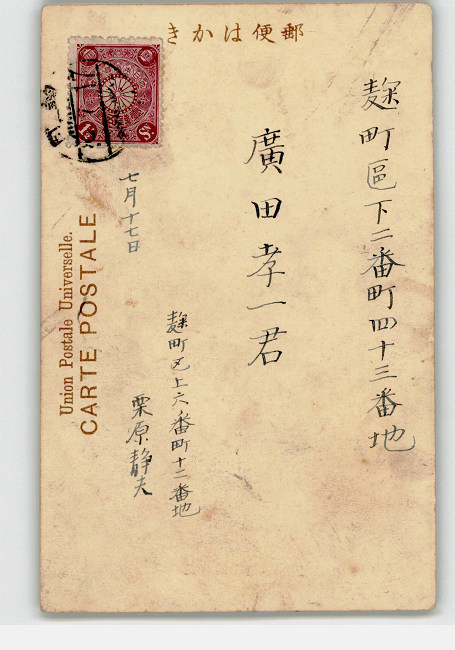 郵便はかき
麹町區下二番町四十三番地
廣田孝一君
麹町区上六番町十二番地
栗原静夫
七月十七日
Union Postale Universelle.
CARTE POSTALE